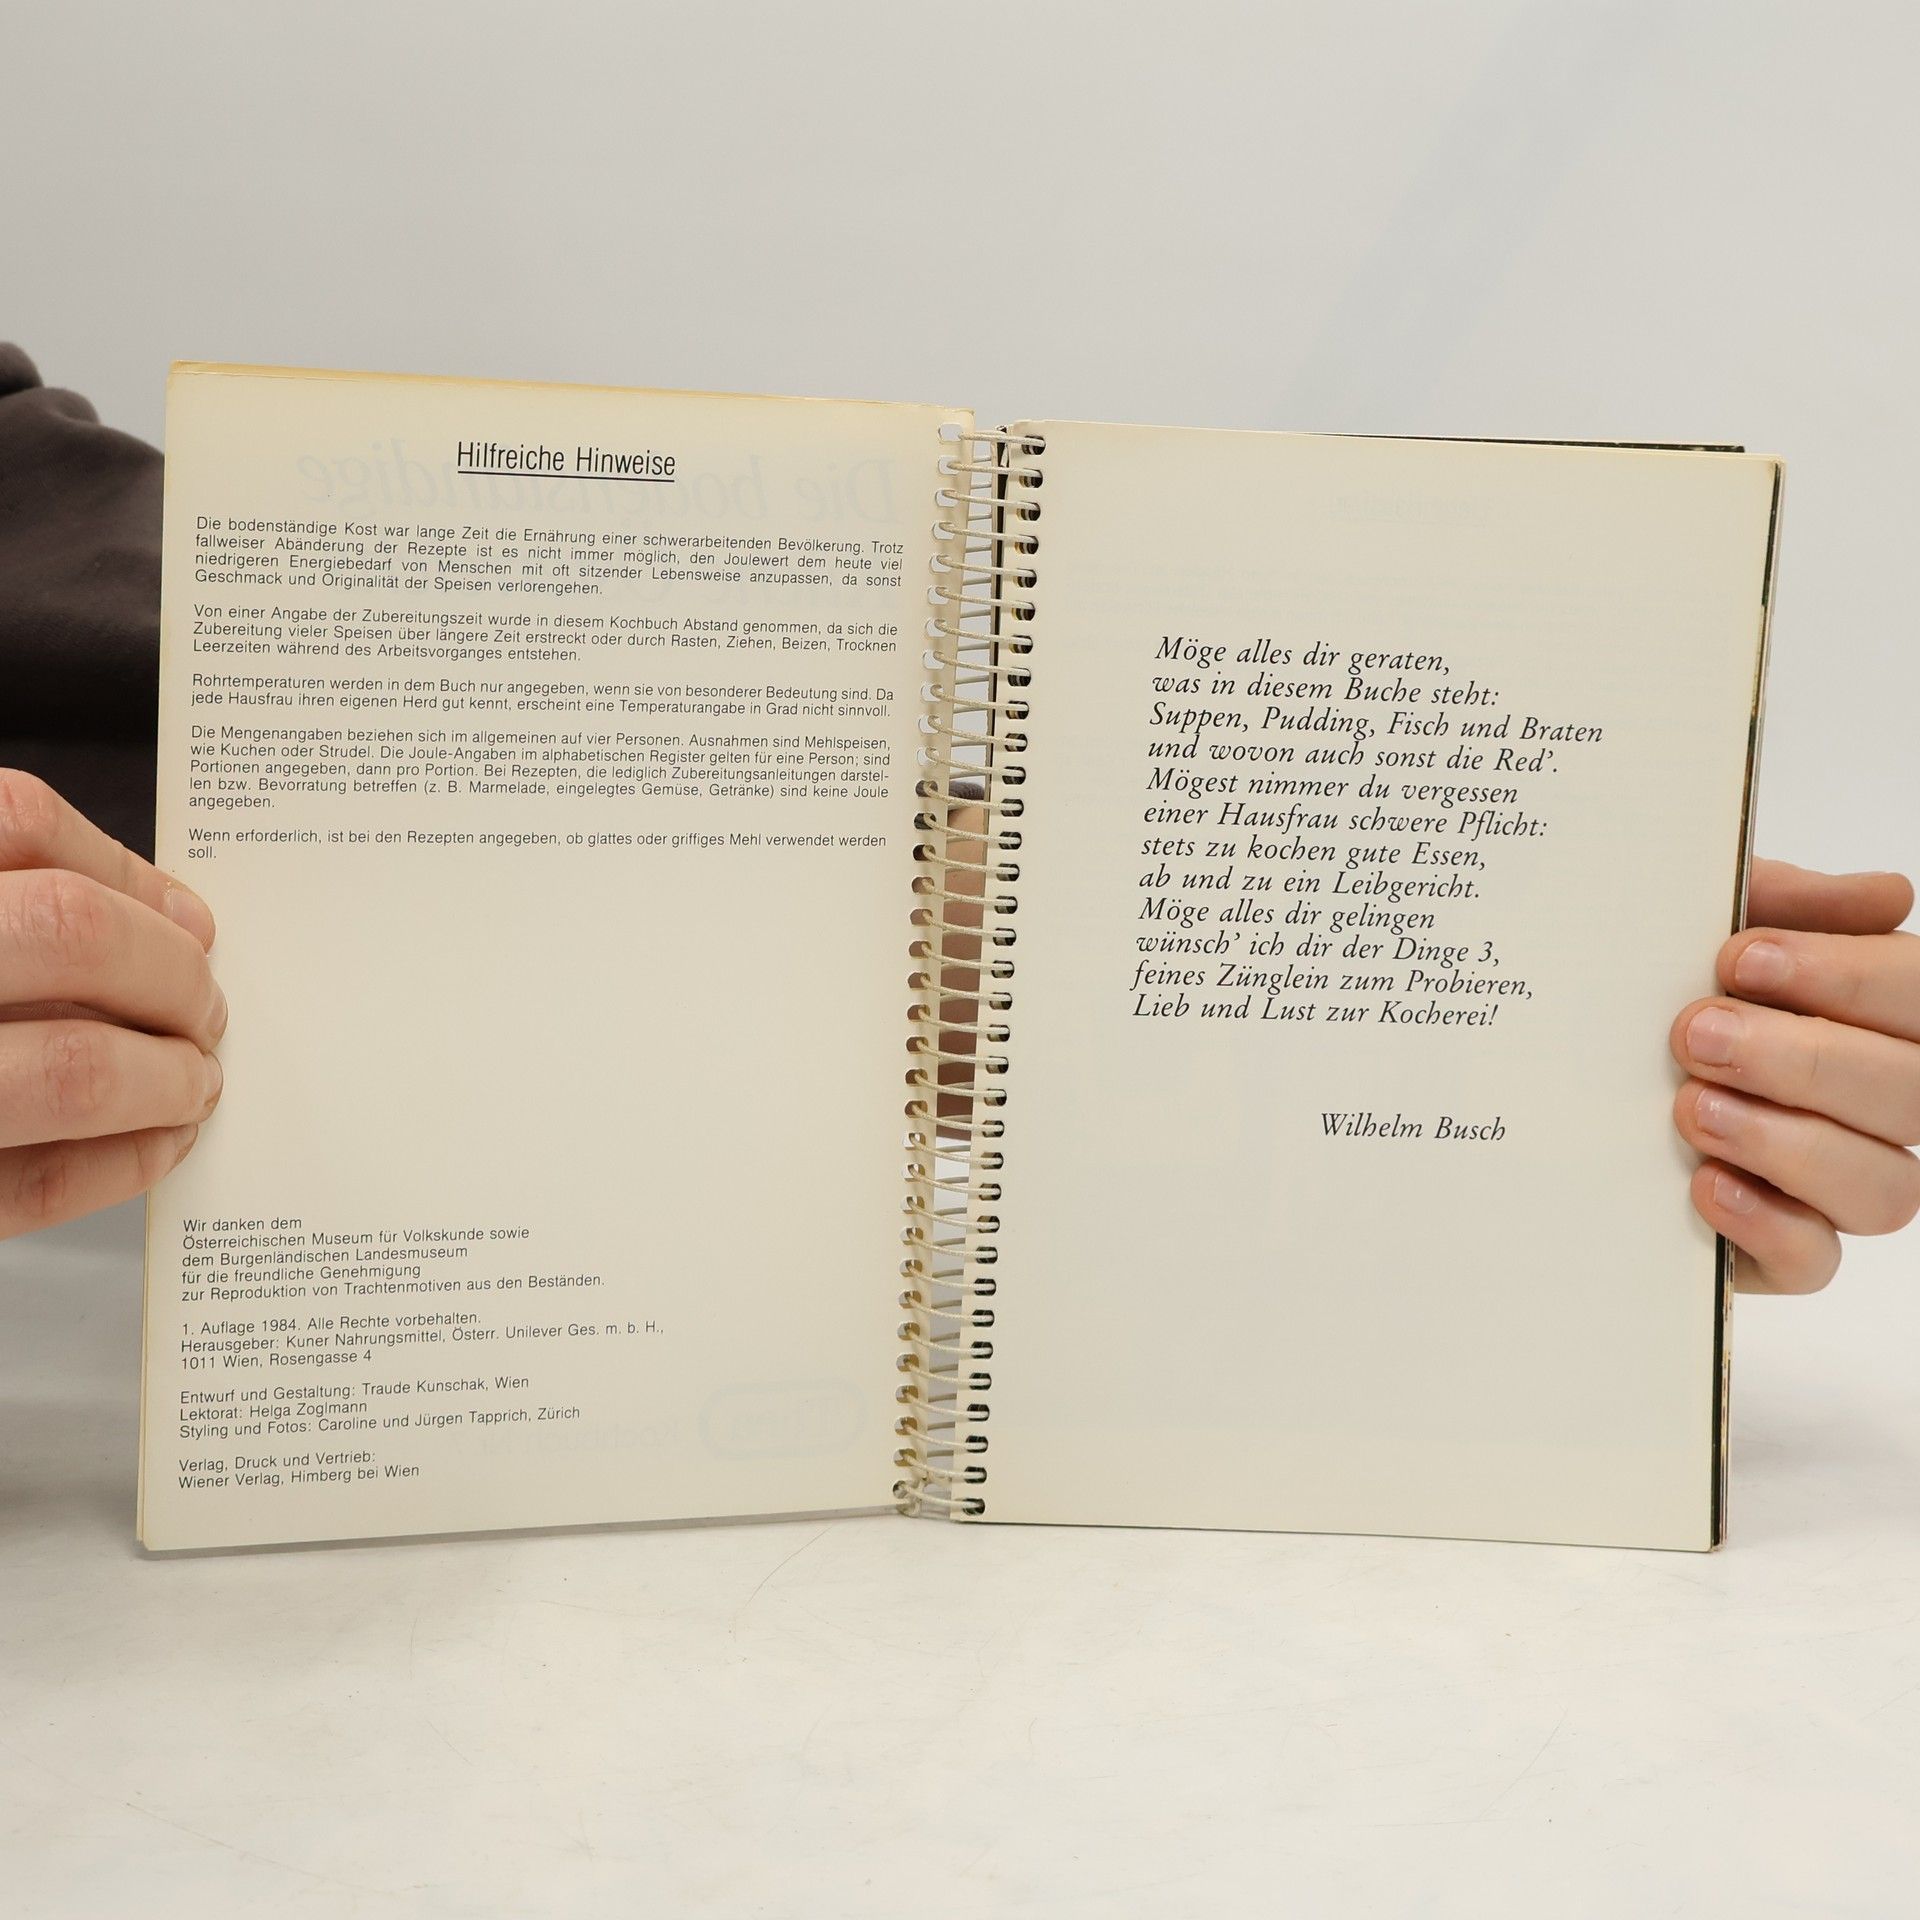 Hilfreiche Hinweise
Die bodenständige Kost war lange Zeit die Ernährung einer schwerarbeitenden Bevölkerung. Trotz
fallweiser Abänderung der Rezepte ist es nicht immer möglich, den Joulewert dem heute viel
niedrigeren Energiebedarf von Menschen mit oft sitzender Lebensweise anzupassen, da sonst
Geschmack und Originalität der Speisen verlorengehen.
Von einer Angabe der Zubereitungszeit wurde in diesem Kochbuch Abstand genommen, da sich die
Zubereitung vieler Speisen über längere Zeit erstreckt oder durch Rasten, Ziehen, Beizen, Trocknen
Leerzeiten während des Arbeitsvorganges entstehen.
Rohrtemperaturen werden in dem Buch nur angegeben, wenn sie von besonderer Bedeutung sind. Da
jede Hausfrau ihren eigenen Herd gut kennt, erscheint eine Temperaturangabe in Grad nicht sinnvoll.
Die Mengenangaben beziehen sich im allgemeinen auf vier Personen. Ausnahmen sind Mehlspeisen,
wie Kuchen oder Strudel. Die Joule-Angaben im alphabetischen Register gelten für eine Person; sind
Portionen angegeben, dann pro Portion. Bei Rezepten, die lediglich Zubereitungsanleitungen darstel-
len bzw. Bevorratung betreffen (z. B. Marmelade, eingelegtes Gemüse, Getränke) sind keine Joule
angegeben.
Wenn erforderlich, ist bei den Rezepten angegeben, ob glattes oder griffiges Mehl verwendet werden
soll.
Wir danken dem
Österreichischen Museum für Volkskunde sowie
dem Burgenländischen Landesmuseum
für die freundliche Genehmigung
zur Reproduktion von Trachtenmotiven aus den Beständen.
1. Auflage 1984. Alle Rechte vorbehalten.
Herausgeber: Kuner Nahrungsmittel, Österr. Unilever Ges. m. b. H.,
1011 Wien, Rosengasse 4
Entwurf und Gestaltung: Traude Kunschak, Wien
Lektorat: Helga Zoglmann
Styling und Fotos: Caroline und Jürgen Tapprich, Zürich
Verlag, Druck und Vertrieb:
Wiener Verlag, Himberg bei Wien
Möge alles dir geraten,
was in diesem Buche steht:
Suppen, Pudding, Fisch und Braten
und wovon auch sonst die Red’.
Mögest nimmer du vergessen
einer Hausfrau schwere Pflicht:
stets zu kochen gute Essen,
ab und zu ein Leibgericht.
Möge alles dir gelingen
wünsch’ ich dir der Dinge 3,
feines Zünglein zum Probieren,
Lieb und Lust zur Kocherei!
Wilhelm Busch